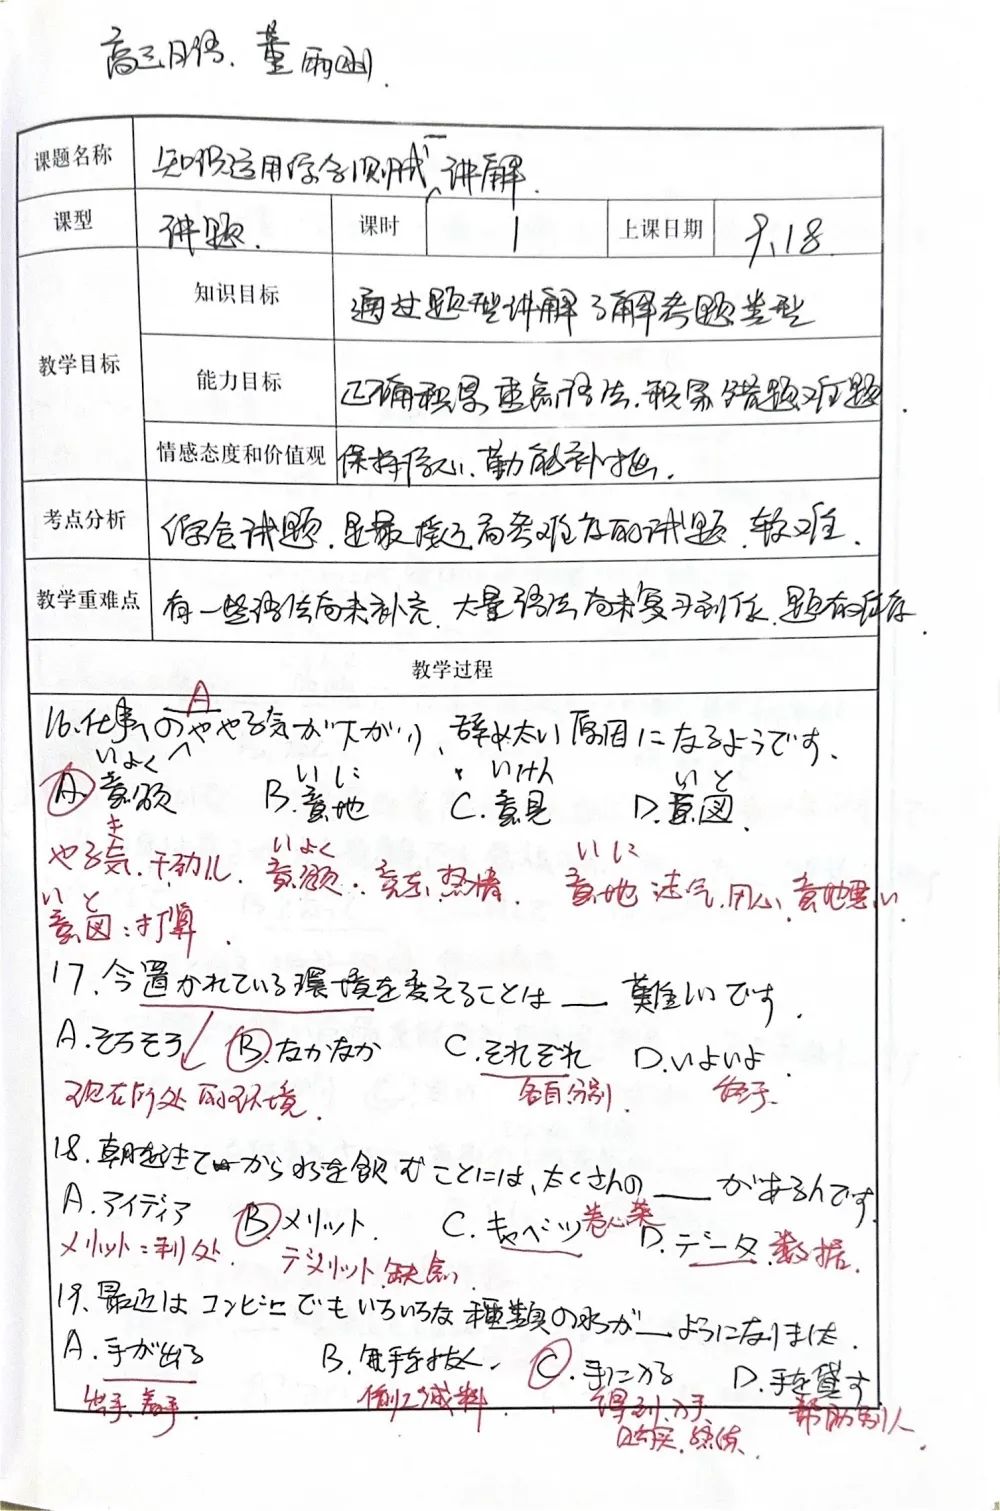 高三日语. 董雨幽.
课题名称 知识运用综合测试一讲解.
课型 讲题. 课时 1 上课日期 9.18
教学目标 知识目标 通过题型讲解了解考题类型
能力目标 正确积累重点语法.积累错题难题.
情感态度和价值观 保持信心、勤能补拙.
考点分析 综合试题.是最接近高考难度的试题.较难.
教学重难点 有一些语法尚未补充.大量语法尚未复习到位.
教学过程
A
16.仕事へのややる気が下がり、辞め太い原因になるようです.
いよく いじ いけん いと
A.意欲 B.意地 C.意見 D.意図.
き いよく いじ
やる気.干劲儿. 意欲:意志,热情. 意地 逞气.用心、意地悪い.
いと
意図:打算.
17.今置かれている環境を変えることは__難しいです.
A.そろそろ B.なかなか C.それぞれ D.いよいよ.
现在所处的环境. 各自分别. 终于.
18.朝起きてから水を飲むことには、たくさんの__があるんです.
A.アイディア B.メリット. C.キャベツ 卷心菜 D.データ 数据.
メリット:利处. デメリット.缺点.
19.最近はコンビニでもいろいろな種類の水が__ようになりました.
A.手が出る B.手を抜く. C.手に入る D.手を貸す
出手、着手. 偷工减料. 得到.入手. 帮助别人
购买.